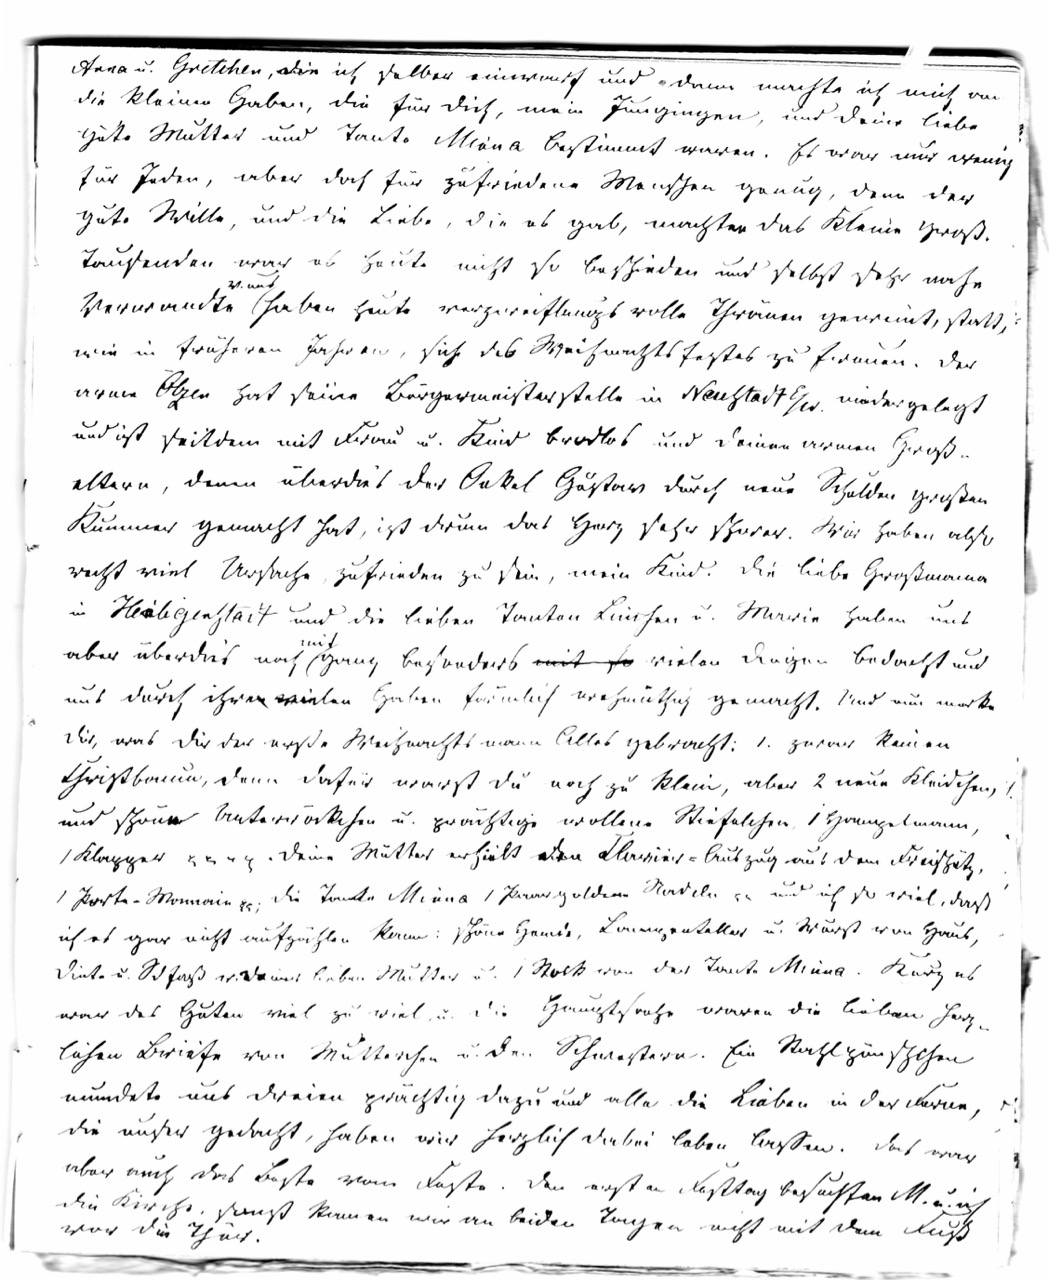 Anna u. Gretchen, die ich selber einwarf und dann machte ich mich an
die kleinen Gaben, die für Dich, mein Jüngingen, und Deine liebe
gute Mutter und Tante Minna bestimmt waren. Es war nur wenig
für Jeden, aber doch für zufriedene Menschen genug, denn der
gute Wille, und die Liebe, die es gab, machten das Kleine groß.
Tausenden war es heute nicht so beschieden und selbst sehr nahe
Verwandte v. uns haben heute verzweiflungsvolle Thränen geweint, statt,
wie in früheren Jahren, sich des Weihnachtsfestes zu freuen. Der
arme hat seine Bürgermeisterstelle in Neustadt niedergelegt
und ist seitdem mit Frau u. Kind brodlos und Deinen armen Groß-
eltern, denen überdies der Onkel Gustav durch neue Schulden großen
Kummer gemacht hat, ist drum das Herz sehr schwer. Wir haben also
recht viel Ursache, zufrieden zu sein, mein Kind. Die liebe Großmama
in Heiligenstadt und die lieben Tanten Linchen u. Marie haben uns
aber überdies noch mit ganz besonders mit so vielen Dingen bedacht und
uns durch ihre vielen Gaben förmlich wehmüthig gemacht. Und nun merke
Dir, was Dir der erste Weihnachtsmann Alles gebracht: 1. zwar keinen
Christbaum, denn dafür warst Du noch zu klein, aber 2 neue Kleidchen, 1
und schöne Unterröckchen u. prächtige wollene Stiefelchen, 1 Hampelmann,
1 Klapper Deine Mutter erhielt den Clavier-Auszug aus dem Freischütz,
1 Porte-Monnaie die Tante Minna 1 Paar goldene Nadeln und ich so viel, daß
ich es gar nicht aufzählen kann: schöne Hemde, Lampenteller u. Wurst von Haus,
Dinte u. v. Deiner lieben Mutter u. 1 Stock von der Tante Minna. Kurz es
war des Guten viel zu viel u. die Hauptsache waren die lieben herz-
lichen Briefe von Mütterchen u. den Schwestern. Ein
mundete uns dreien prächtig dazu und alle die Lieben in der Ferne,
die unser gedacht, haben wir herzlich dabei leben lassen. Das war
aber auch das Beste vom Feste. Den ersten Festtag besuchten M. u. ich
die Kirche, sonst kamen wir an beiden Tagen nicht mit dem Fuß
vor die Thür.